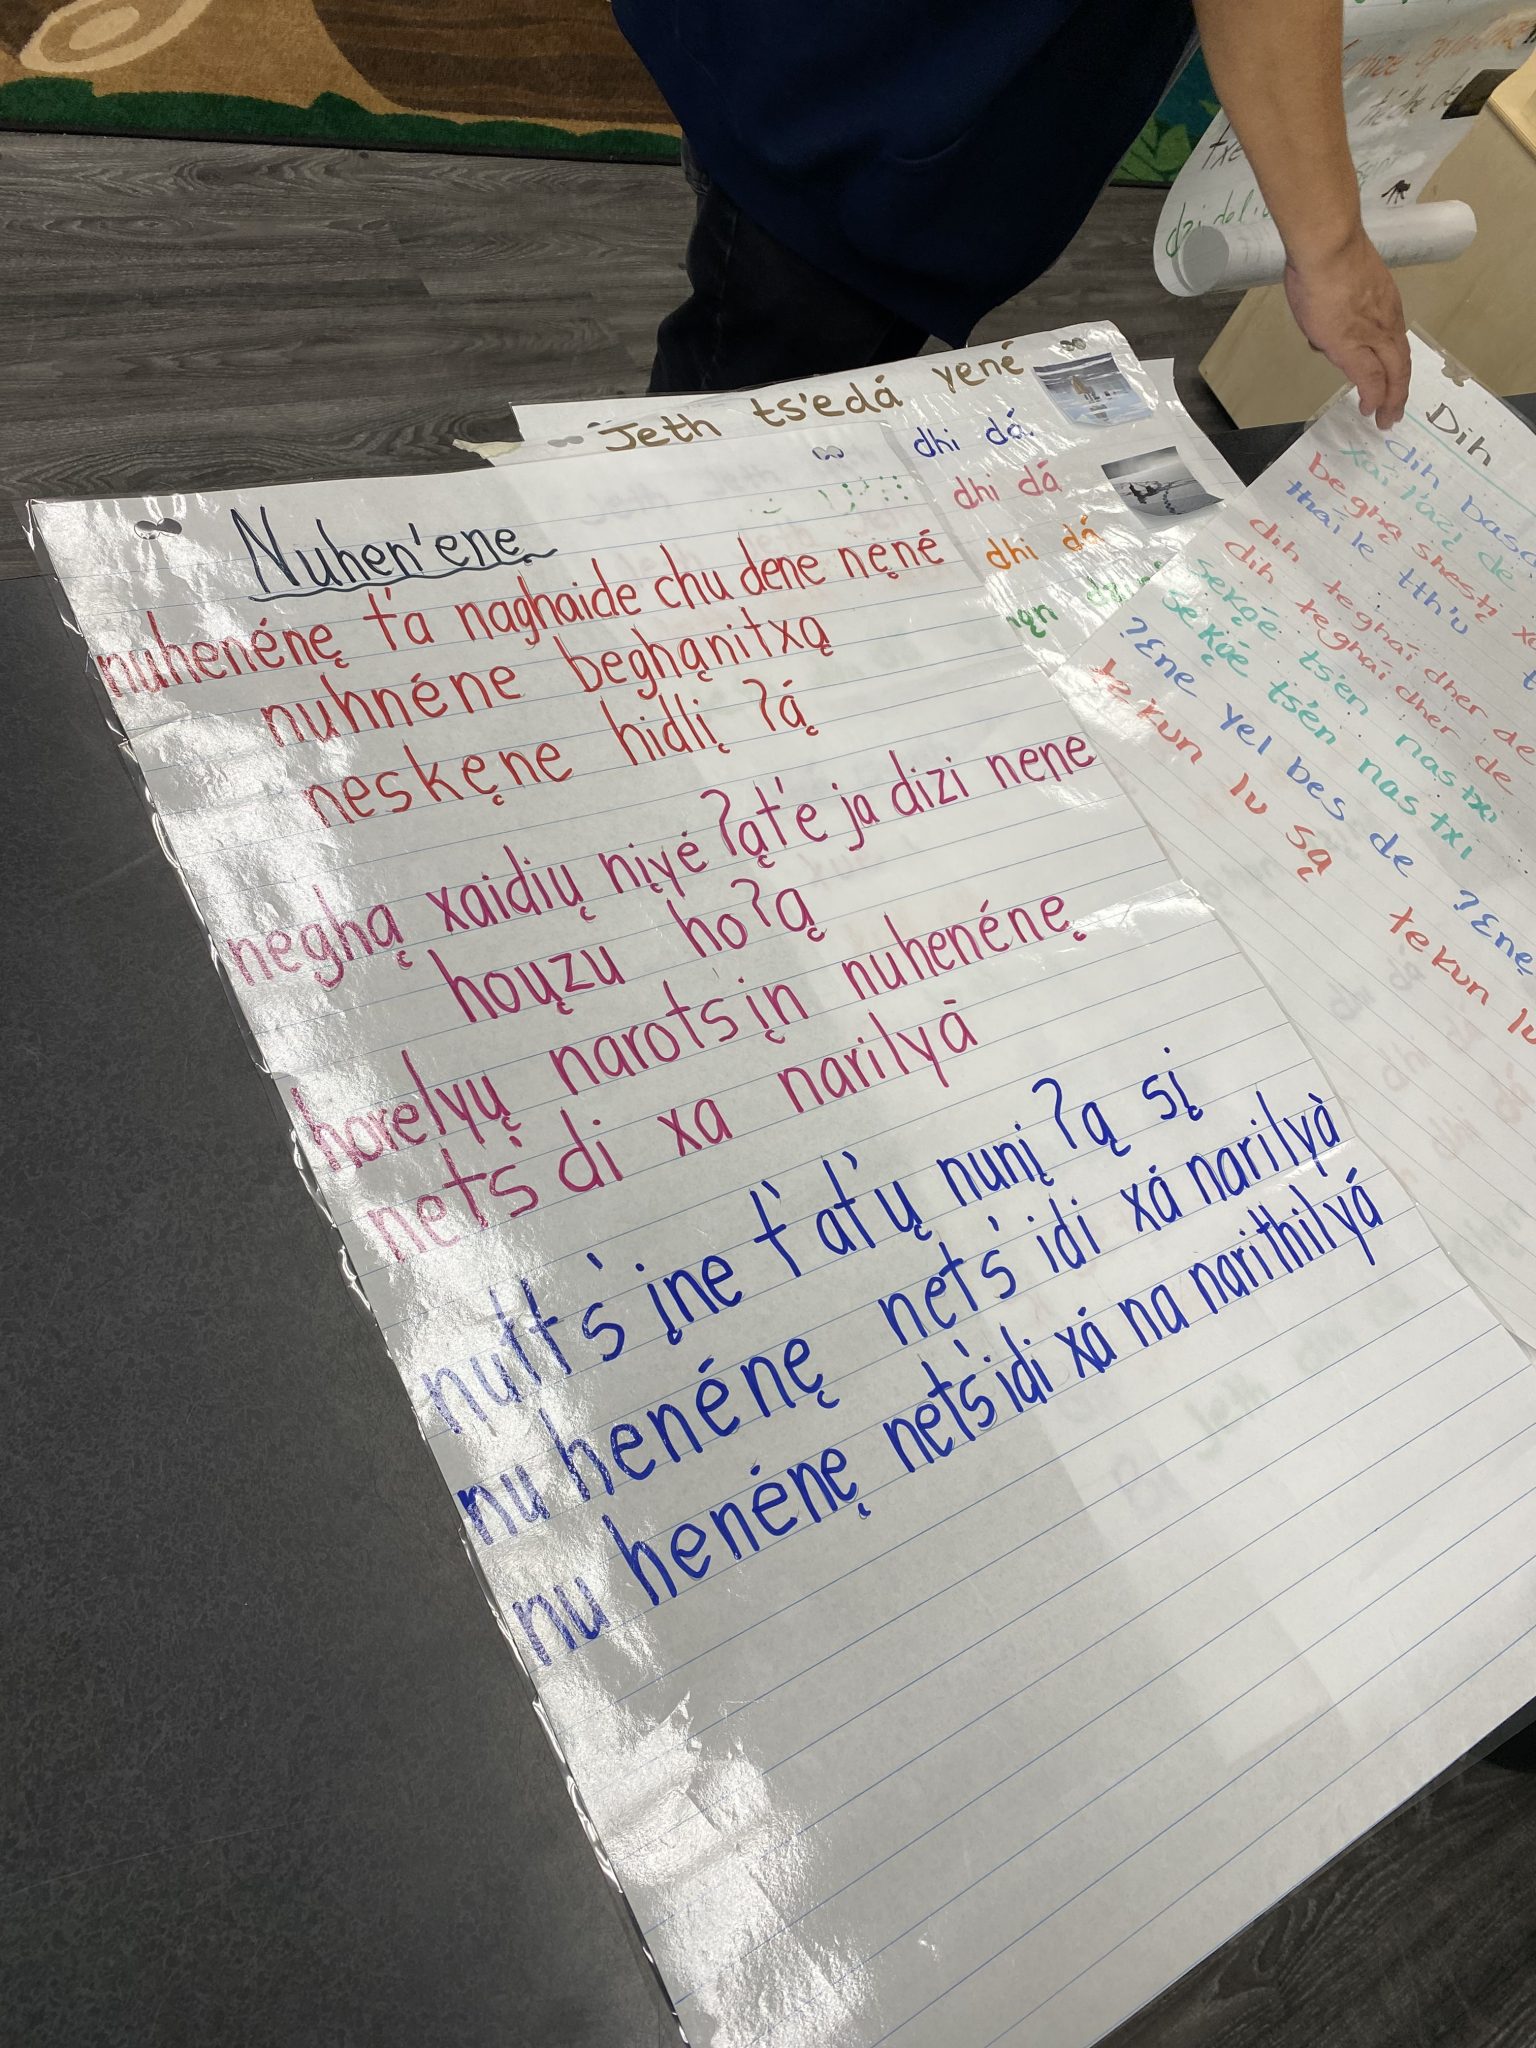 Nuhen'enę
nuhenénę t'a naghaide chu dene nęné
nuhnéne beghąnitxą
neskęne hidlį ʔą́
neghą xaidįų nįyé ʔąt'e ja dizi nene
houzu hoʔą
horelyų narots įn nuhenénę
nets' di xa narilyā
nutts' įne t'at'ų nunį ʔą sį
nuhenénę nets' idi xá narilyà
nu henénę nets'idi xá na narithilyá
Jeth ts'edá yené
dhi dá
dhi dá
dhi dá
Dih
dih
begha shestį
thai le tth'u
dih teghai dher de
dih teghai dher de
sekǫé ts'en nastxi
sekųé ts'én nas txi
ʔɛne yel bes de ʔɛnę
te kun lu są tekun lu